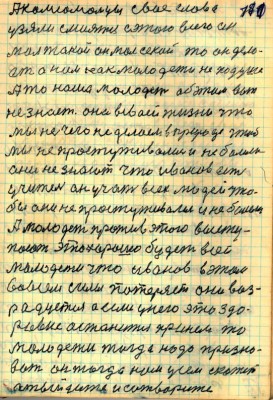 А комсомольцы свое слова
узяли смиятся сэтого всего он
мол такой он мол секой то он дело
ет а нам как молодежи не подуше
А то наша молодеж об этом вот
незнает. она в своей жизни что
мы не чего не делаем в природе чтоб
мы не простуживалися и не болели
они не знают что иванов есть
учител он учит всех людей что
бы они не простуживалися и не болели
А молодеж против этого высту-
пает это хорошо будет всей
молодежи что иванов в этом
совсем силы потеряет они воз-
радуется а если у него это здо-
ровие останится прежнем то
молодежи тогда надо призно-
ват он тогда нам усем скажет